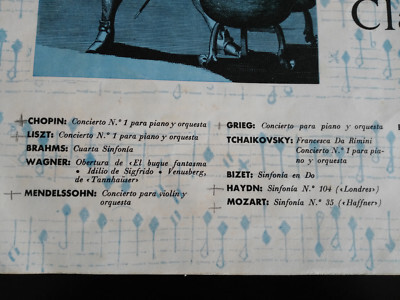 Cl
CHOPIN: Concierto N.º 1 para piano y orquesta
LISZT: Concierto N.º 1 para piano y orquesta
BRAHMS: Cuarta Sinfonía
WAGNER: Obertura de «El buque fantasma
• Idilio de Sigfrido • Venusberg,
de «Tannhäuser»
MENDELSSOHN: Concierto para violín y
orquesta
GRIEG: Concierto para piano y orquesta
TCHAIKOVSKY: Francesca Da Rimini
Concierto N.º 1 para pia-
no y orquesta
BIZET: Sinfonía en Do
HAYDN: Sinfonía N.º 104 («Londres»)
MOZART: Sinfonía N.º 35 («Haffner»)